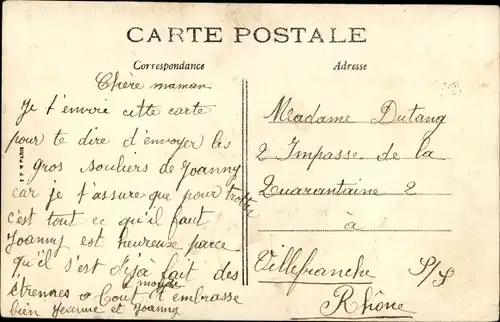 CARTE POSTALE
Correspondance
Adresse
Chère maman
Je t'envoie cette carte
pour te dire d'envoyer les
gros souliers de Joanny
car je t'assure que pour trotter
c'est tout ce qu'il faut
Joanny est heureuse parce
qu'il s'est déjà fait des
étrennes Tout le monde t'embrasse
bien Jeanne et Joanny
Madame Dutang
2 Impasse de la
Quarantaine 2
à
Villefranche s/s
Rhône